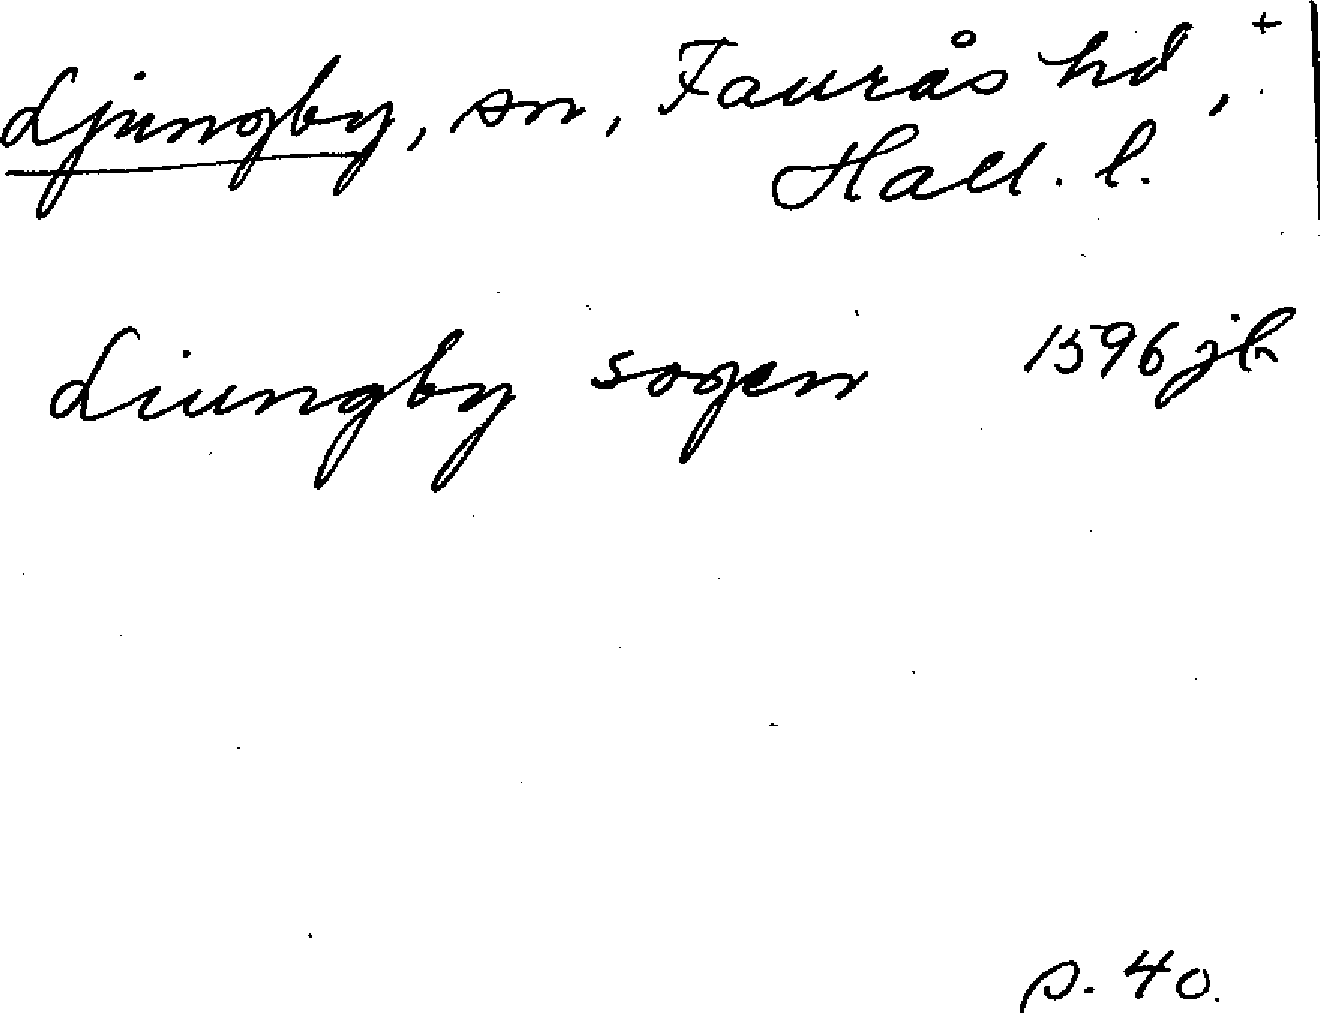 Ljungby, sn, Faurås hd, +
Hall. l.
Liungby sogen 1596 jb
s. 40.